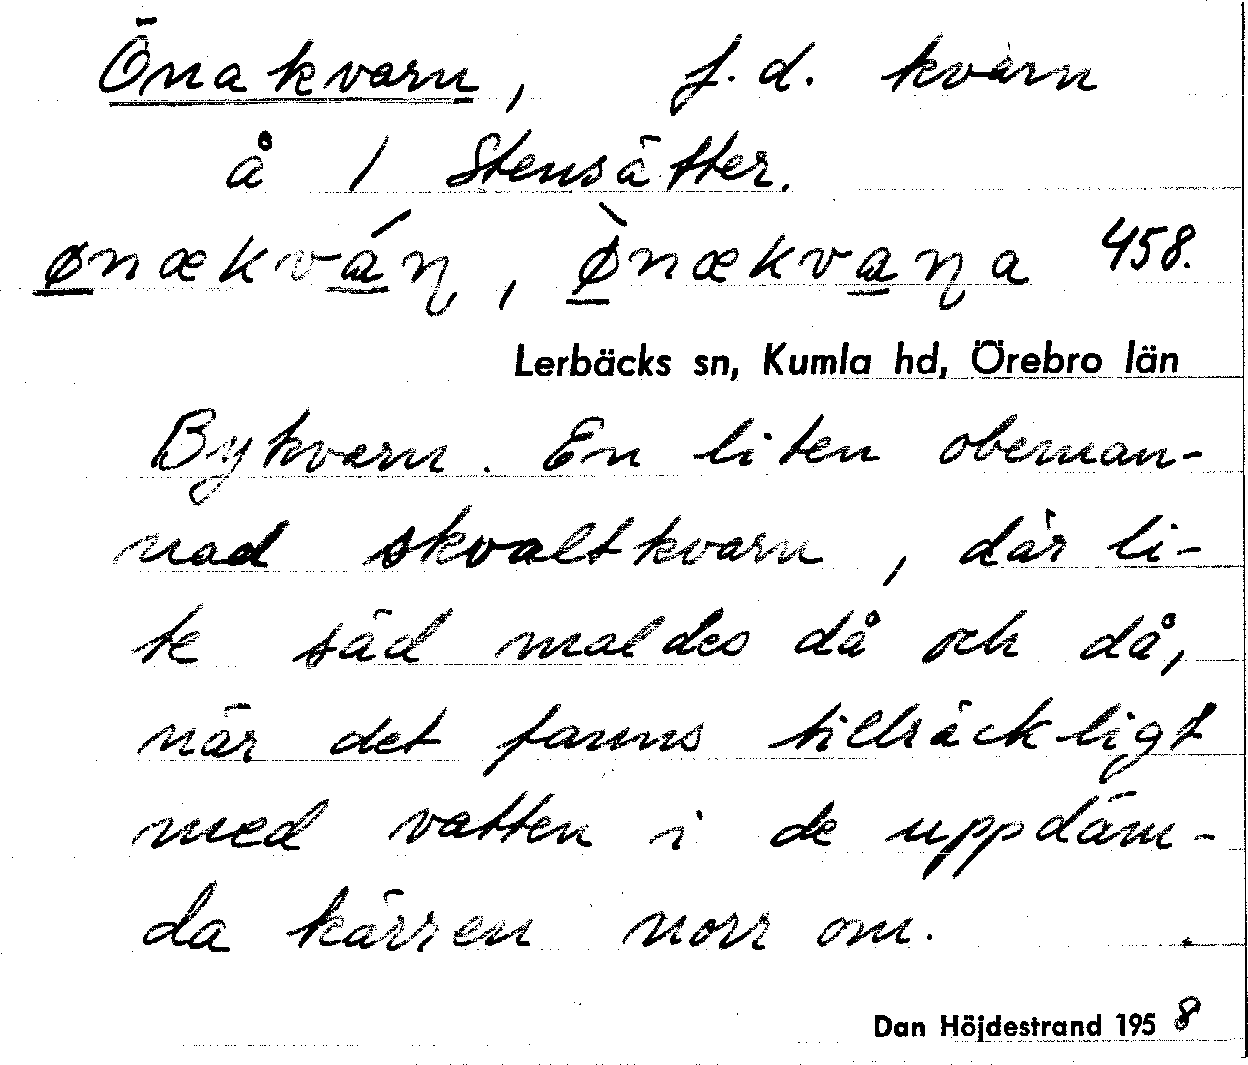 Önakvarn, f.d. kvarn
å 1 Stensätter.
ønækván, ø̀nækvaṇa 458.
Lerbäcks sn, Kumla hd, Örebro län
Bykvarn. En liten obeman-
nad skvaltkvarn, där li-
te säd maldes då och då,
när det fanns tillräckligt
med vatten i de uppdäm-
da kärren norr om.
Dan Höjdestrand 1958